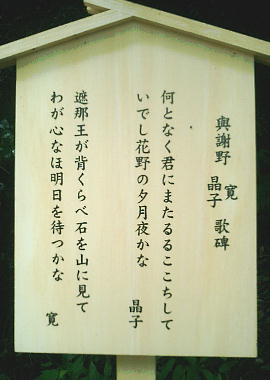 與謝野 寛 晶子 歌碑
何となく君にまたるるここちして
いでし花野の夕月夜かな
晶子
遮那王が背くらべ石を山に見て
わが心なほ明日を待つかな
寛